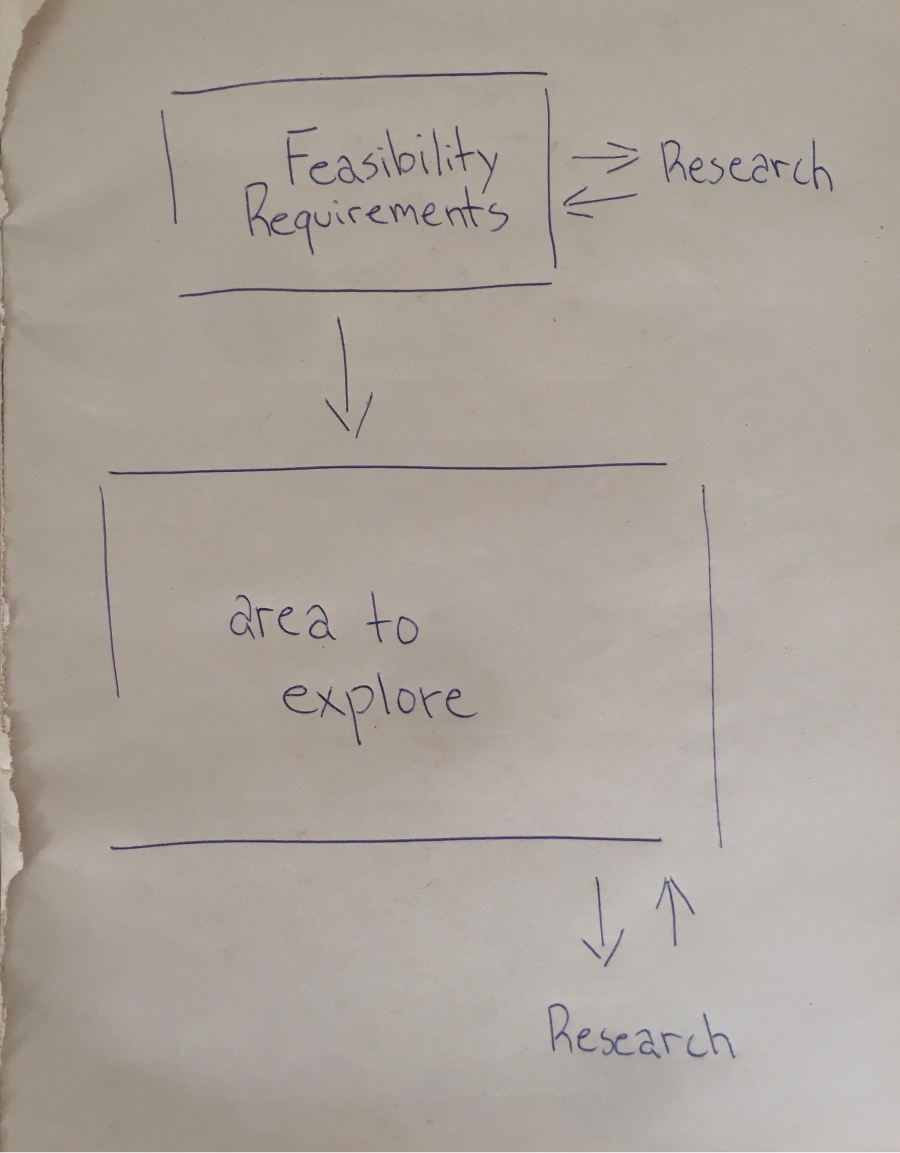 Feasibility
Requirements
Research
area to
explore
Research